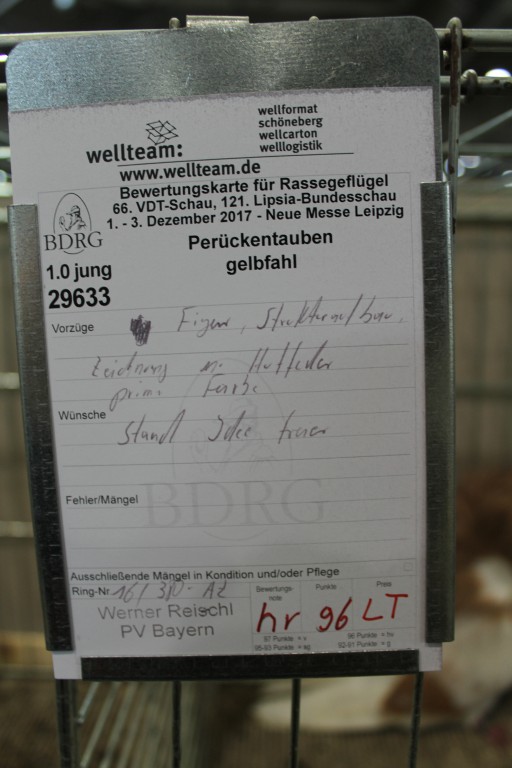 wellteam:
wellformat
schöneberg
wellcarton
welllogistik
www.wellteam.de
Bewertungskarte für Rassegeflügel
66. VDT-Schau, 121. Lipsia-Bundesschau
1. - 3. Dezember 2017 - Neue Messe Leipzig
BDRG
Perückentauben
gelbfahl
1.0 jung
29633
Vorzüge
Figur,
Zeichnung
prima Farbe
Wünsche
Stand Idee freier
Fehler/Mängel
BDRG
Ausschließende Mängel in Kondition und/oder Pflege
Ring-Nr.
Werner Reischl
PV Bayern
Bewertungs-
note
Punkte
Preis
hr 96 LT
97 Punkte = v
96 Punkte = hv
95-93 Punkte = sg
92-91 Punkte = g